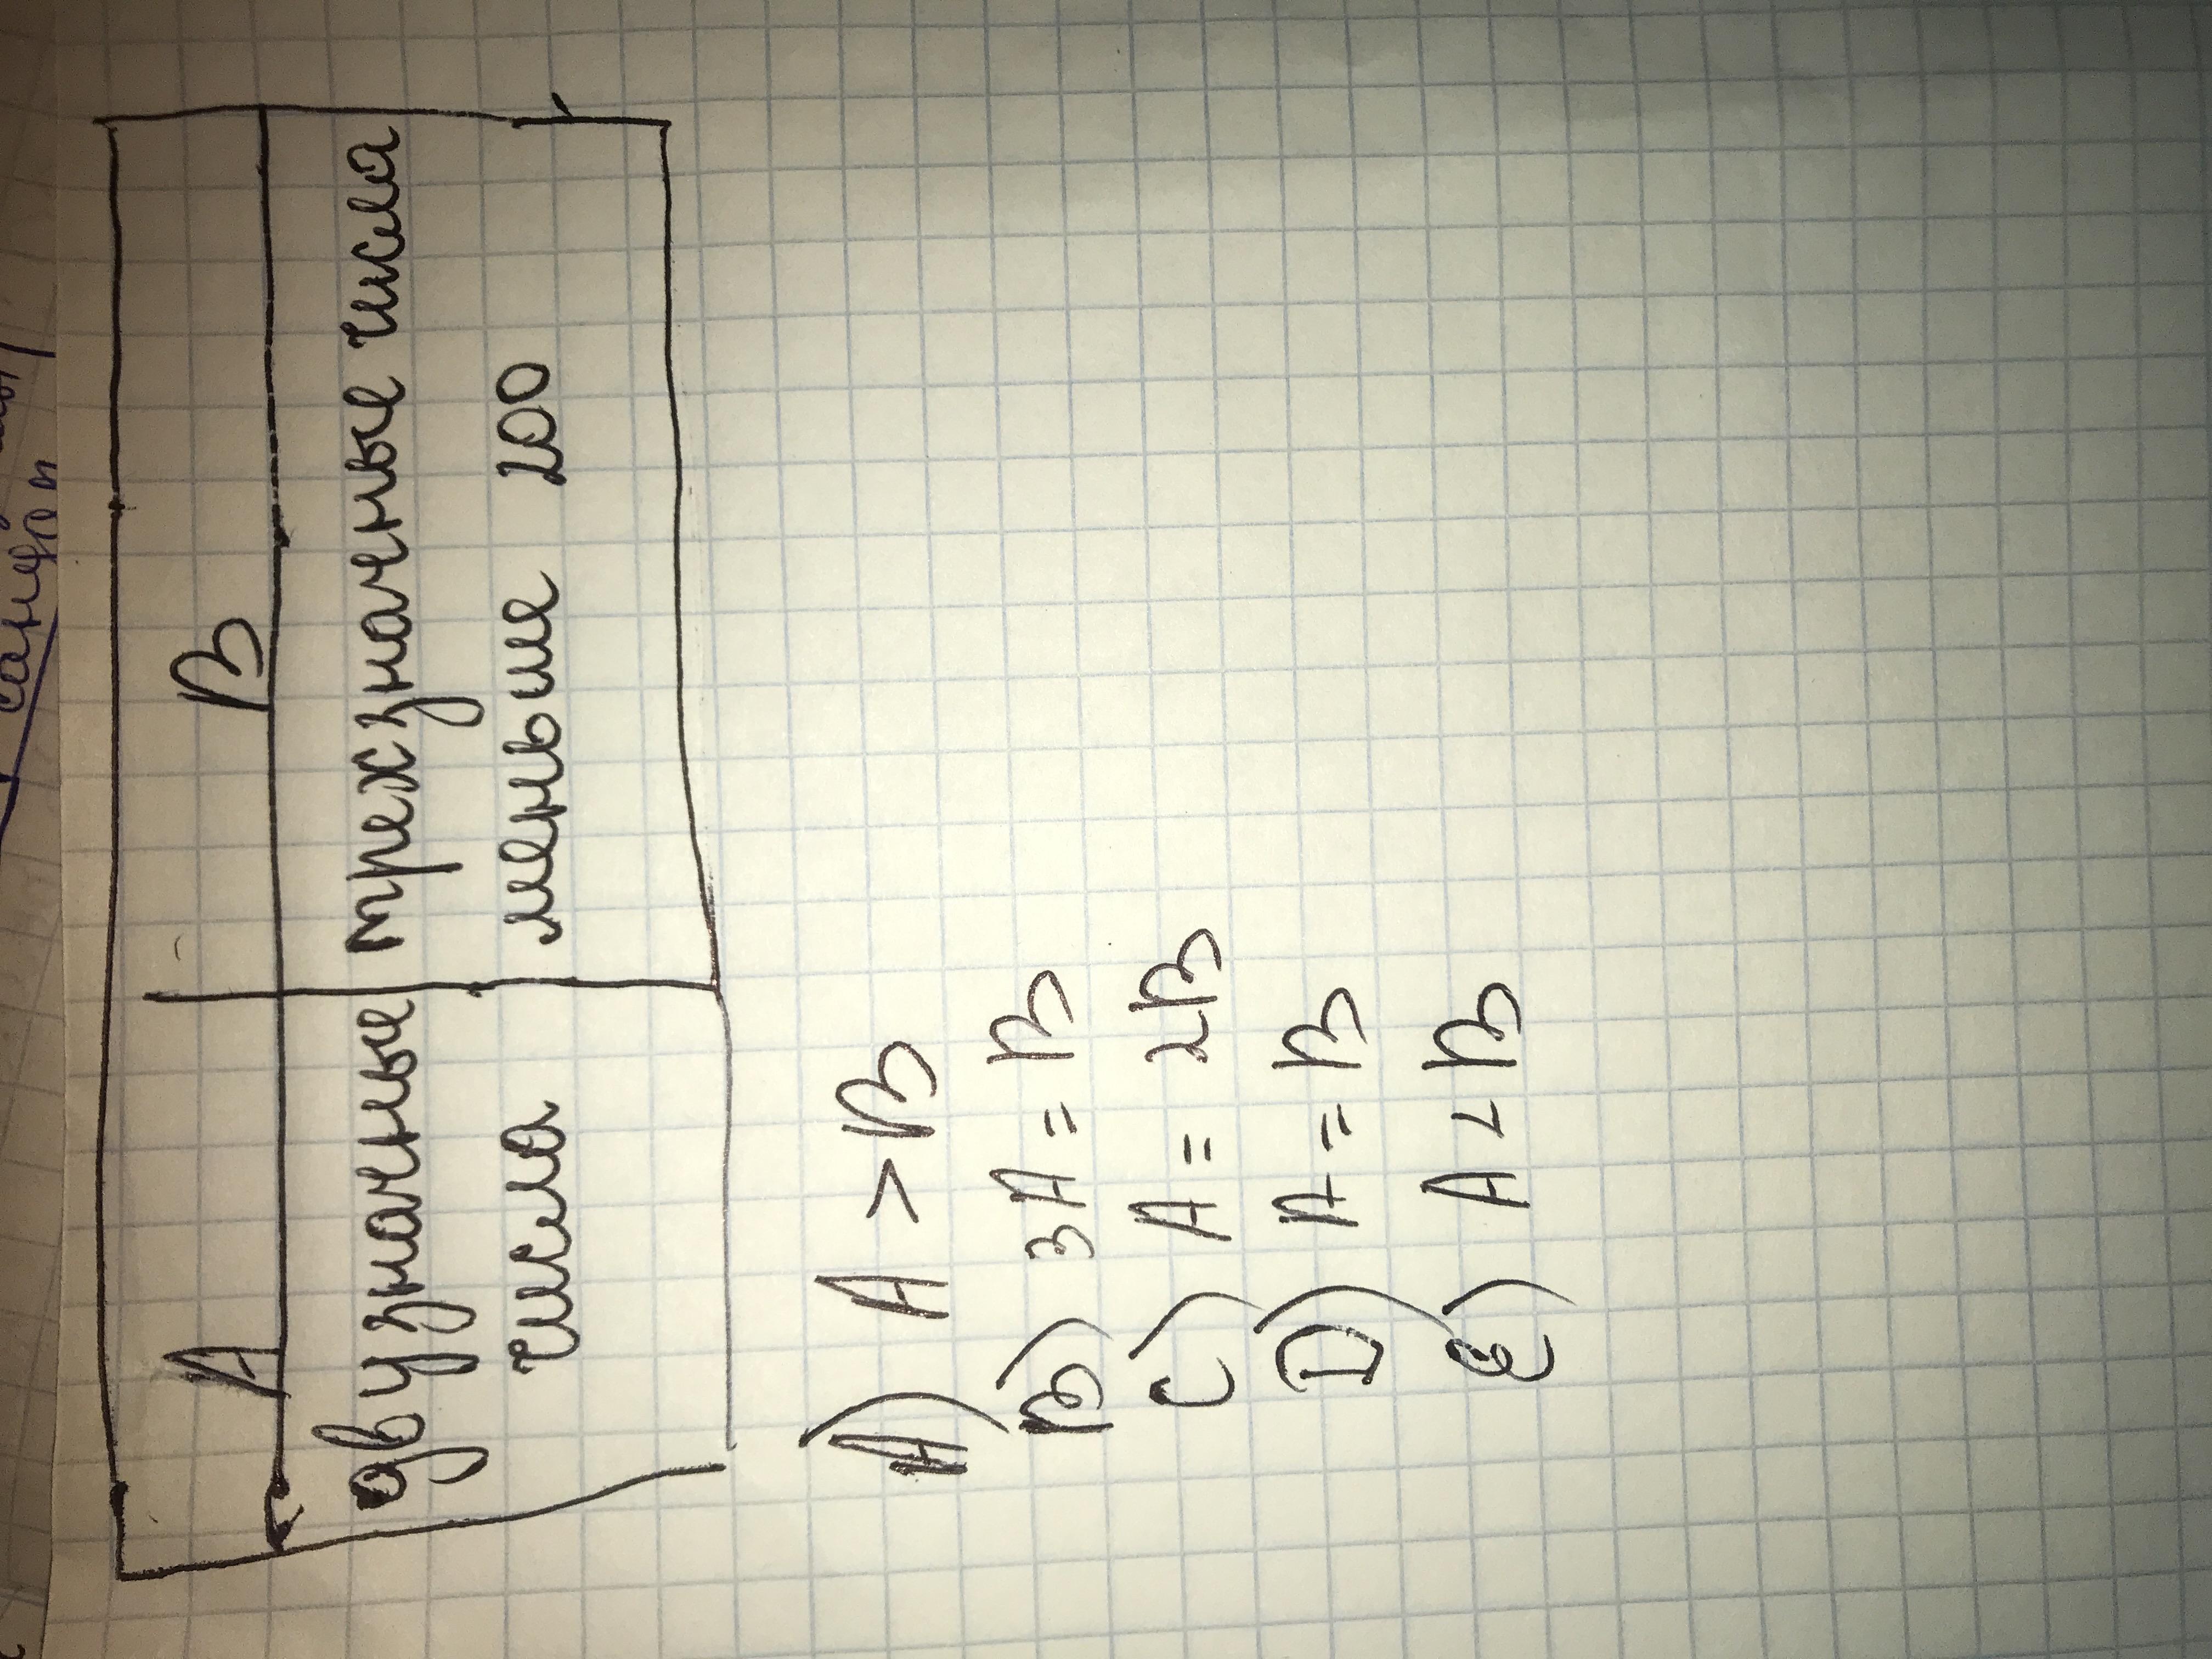 A B
двузначные трехзначные числа
числа меньше 200
A) A > B
B) 3A = B
C) A = 2B
D) A = B
E) A < B